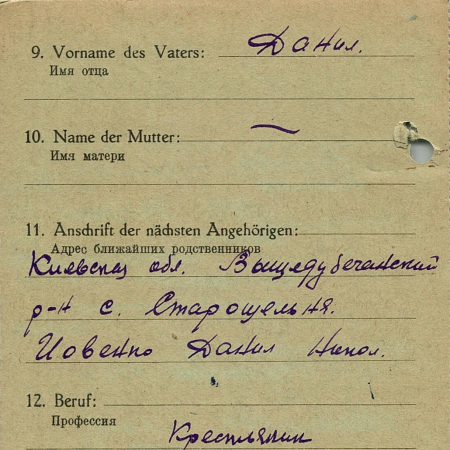 9. Vorname des Vaters: Данил.
Имя отца
10. Name der Mutter: —
Имя матери
11. Anschrift der nächsten Angehörigen:
Адрес ближайших родственников
Киевская обл. Вышедубечанский
р-н с. Старощельня.
Иовенко Данил Никол.
12. Beruf:
Профессия
Крестьянин